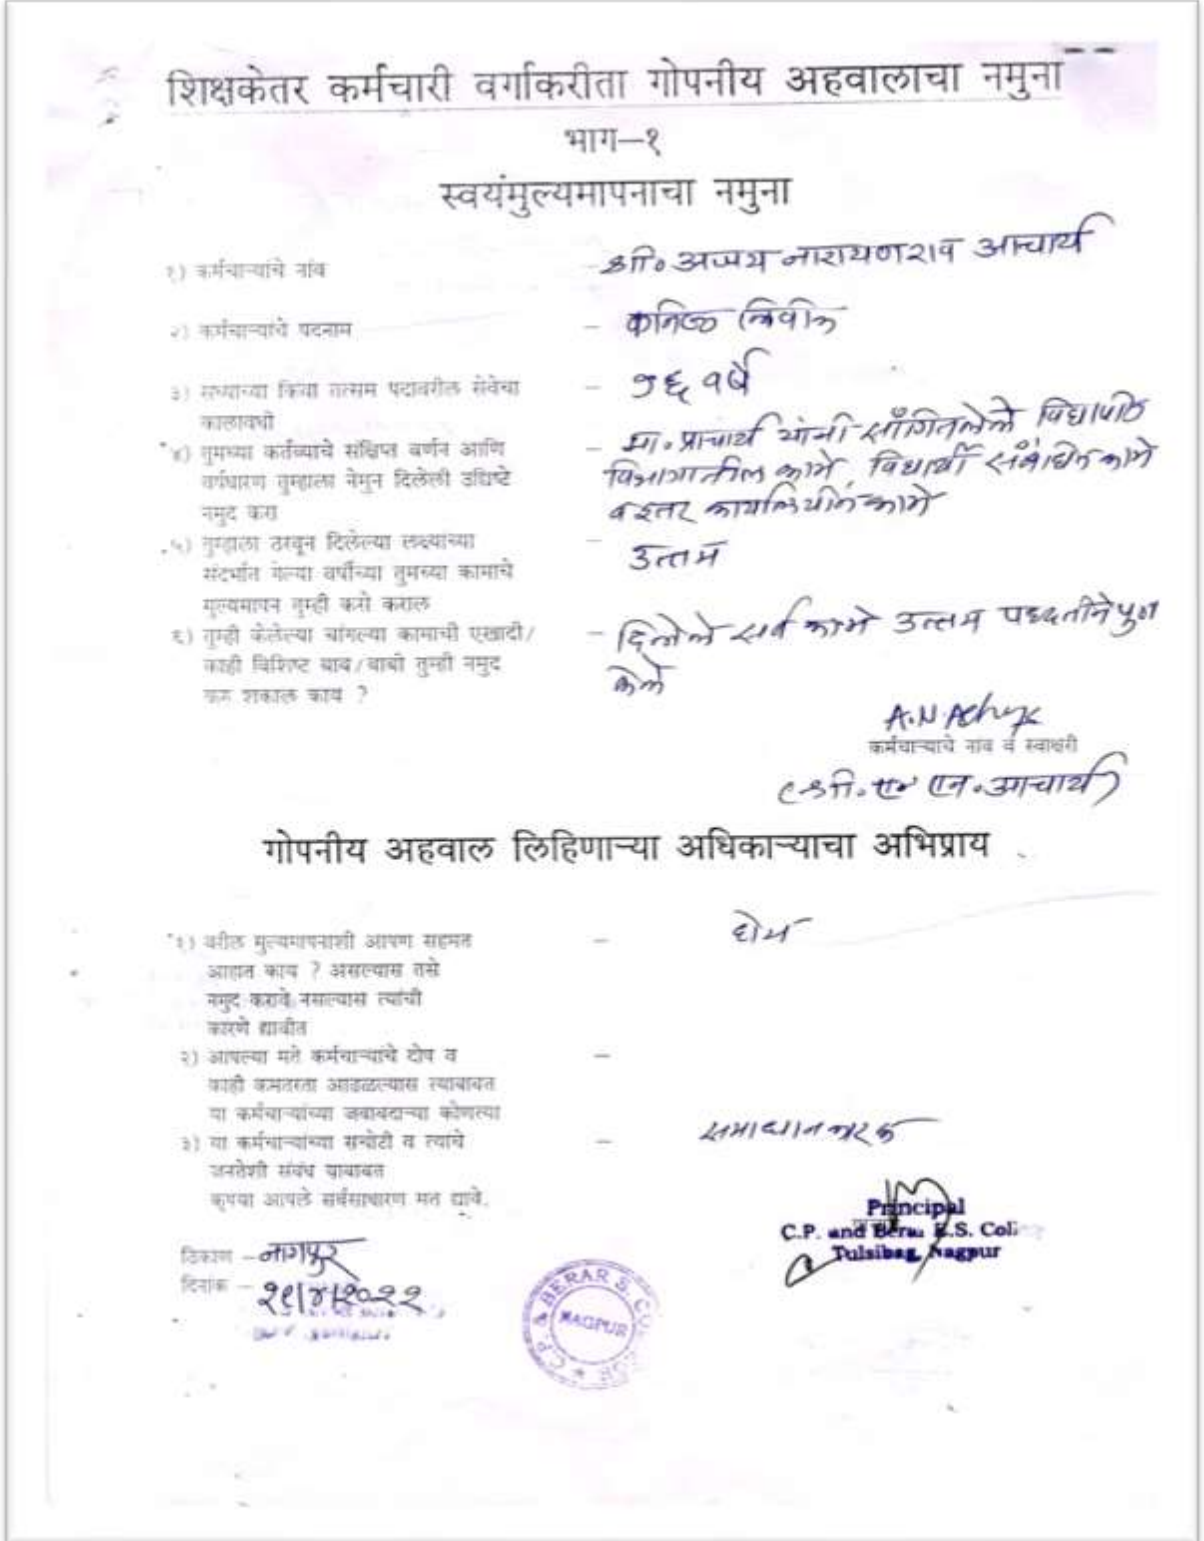 शिक्षकेतर कर्मचारी वर्गाकरीता गोपनीय अहवालाचा नमुना
भाग—१
स्वयंमुल्यमापनाचा नमुना
१) कर्मचाऱ्यांचे नांव - श्री. अजय नारायणराव आचार्य
२) कर्मचाऱ्यांचे पदनाम - कनिष्ठ लिपीक
३) सध्याच्या किंवा तत्सम पदावरील सेवेचा - १६ वर्षे
कालावधी
४) तुमच्या कर्तव्याचे संक्षिप्त वर्णन आणि - मा. प्राचार्य यांनी सांगितलेले विद्यापीठ
वर्षभरात तुम्हाला नेमुन दिलेली उद्दिष्टे विभागातील कामे, विद्यार्थी संबंधित कामे
नमुद करा व इतर कार्यालयीन कामे
५) तुम्हाला ठरवून दिलेल्या लक्ष्यांच्या - उत्तम
संदर्भात गेल्या वर्षीच्या तुमच्या कामाचे
मुल्यमापन तुम्ही कसे कराल
६) तुम्ही केलेल्या चांगल्या कामाची एखादी/ - दिलेले सर्व कामे उत्तम पध्दतीने पुर्ण
काही विशिष्ट बाब/बाबी तुम्ही नमुद केले
करु शकाल काय ?
A.N. Acharya
कर्मचाऱ्याचे नांव व स्वाक्षरी
(श्री. ए. एन. आचार्य)
गोपनीय अहवाल लिहिणाऱ्या अधिकाऱ्याचा अभिप्राय
१) वरील मुल्यमापनाशी आपण सहमत - होय
आहात काय ? असल्यास तसे
नमुद करावे नसल्यास त्यांची
कारणे द्यावीत
२) आपल्या मते कर्मचाऱ्यांचे दोष व -
काही कमतरता आढळल्यास त्याबाबत
या कर्मचाऱ्यांच्या जबाबदाऱ्या कोणत्या
३) या कर्मचाऱ्यांच्या सचोटी व त्यांचे - समाधानकारक
जनतेशी संबंध याबाबत
कृपया आपले सर्वसाधारण मत द्यावे.
Principal
C.P. and Berar E.S. Coll
Tulsibag, Nagpur
ठिकाण - नागपूर
दिनांक - २९/४/२०२२
C.P. & BERAR
NAGPUR